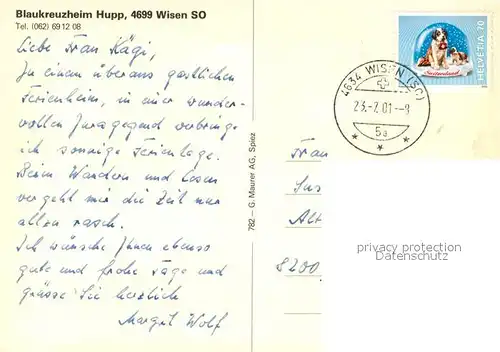 Blaukreuzheim Hupp, 4699 Wisen SO
Tel. (062) 69 12 08
Liebe Frau Kägi,
In einem überaus gastlichen
Ferienheim, in einer wunder-
vollen Juragegend verbringe
ich sonnige Ferientage.
Beim Wandern und Lesen
vergeht mir die Zeit nur
allzu rasch.
Ich wünsche Ihnen ebenso
gute und frohe Tage und
grüsse Sie herzlich
Margrit Wolf
782.– G. Maurer AG, Spiez
HELVETIA 70
Switzerland
4634 WISEN (SO)
23.-7.01--8
5a
Frau
Sus
Alt
8200
privacy protection
Datenschutz